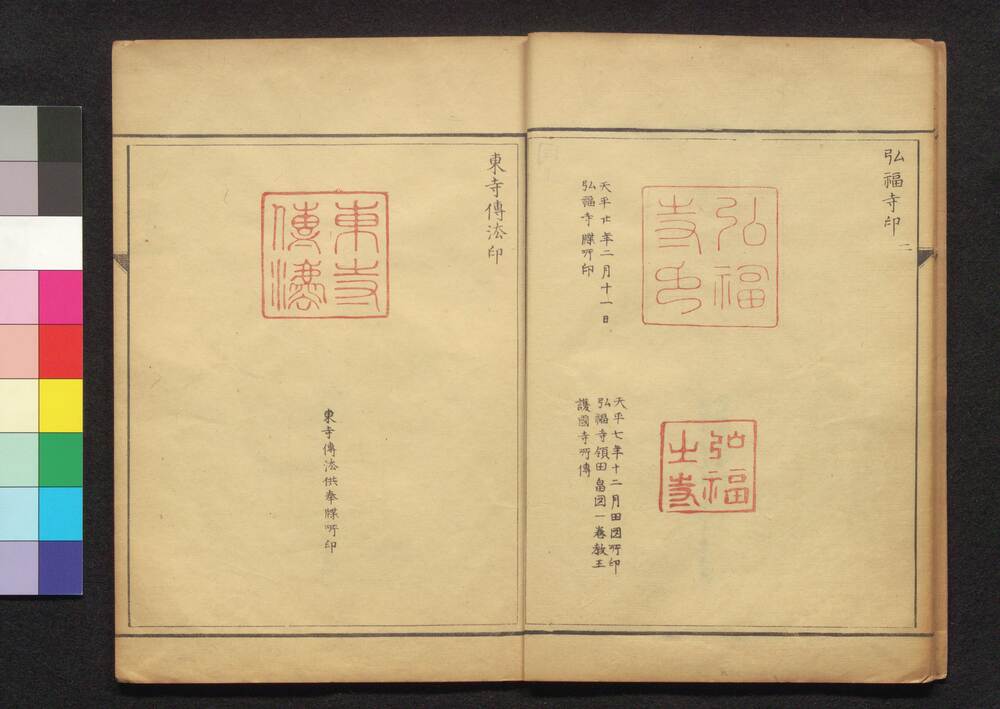 弘福寺印二
弘福
寺印
天平廿年二月十一日
弘福寺牒所印
弘福
之寺
天平七年十二月田図所印
弘福寺領田畠図一巻教王
護國寺所傳
東寺傳法印
東寺
傳法
東寺傳法供奉牒所印